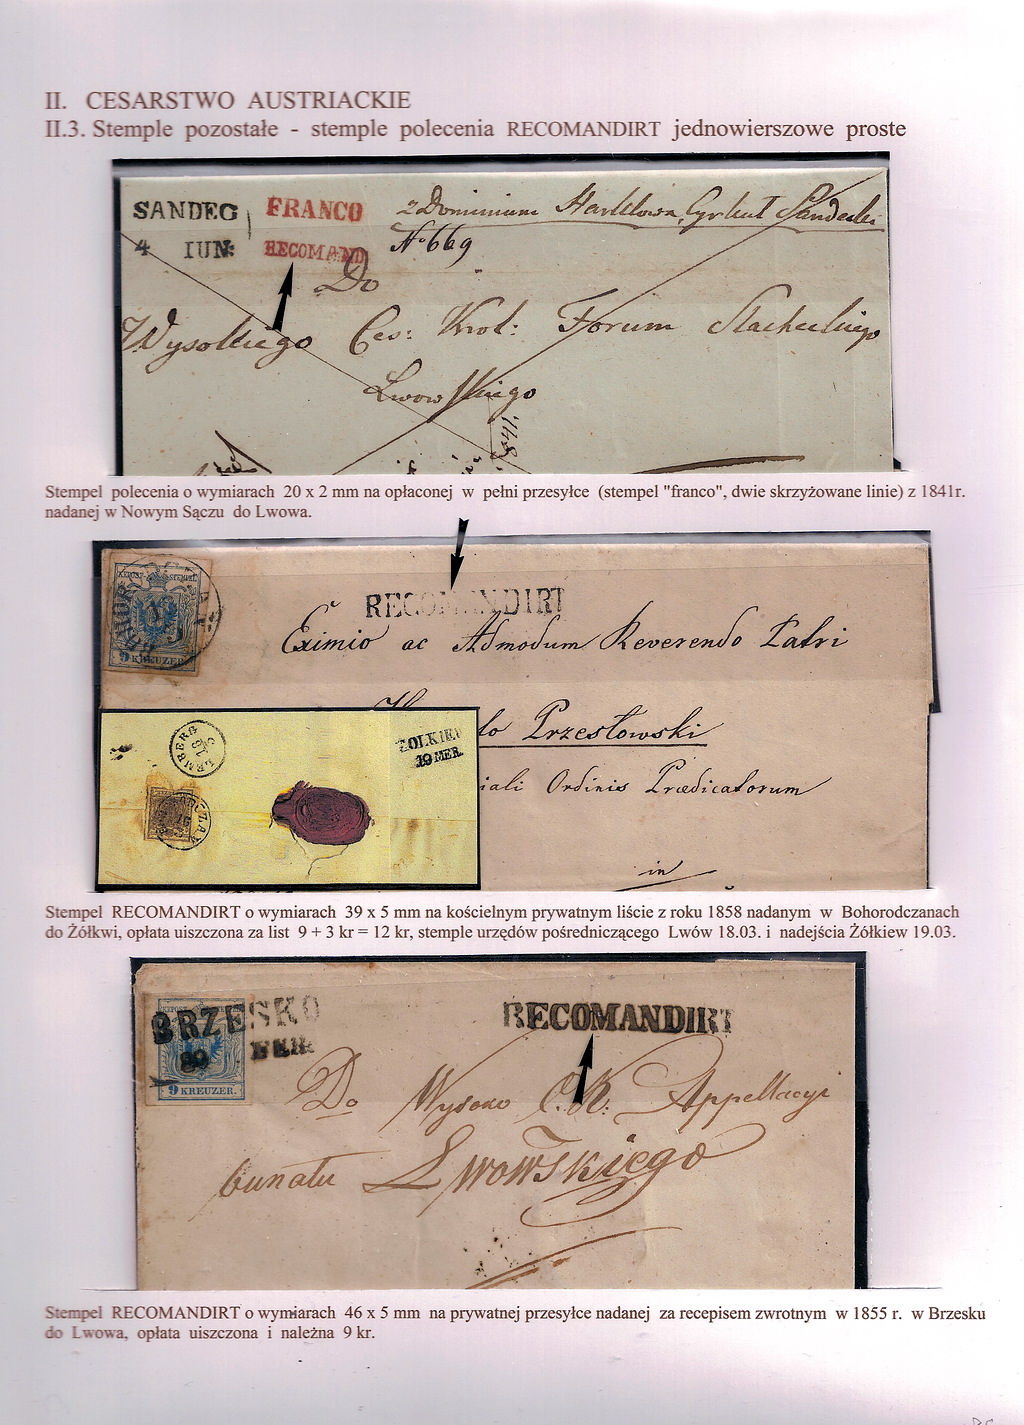 II. CESARSTWO AUSTRIACKIE
II.3. Stemple pozostałe - stemple polecenia RECOMANDIRT jednowierszowe proste
SANDEC FRANCO z Dominium Harklowa, Cyrkuł Sandecki
4 IUN: RECOMAND N° 669
Do
Wysokiego Ces: Król: Forum Slacheckiego
Lwowskiego
Stempel polecenia o wymiarach 20 x 2 mm na opłaconej w pełni przesyłce (stempel "franco", dwie skrzyżowane linie) z 1841r.
nadanej w Nowym Sączu do Lwowa.
RECOMANDIRT
9 KREUZER
Eximio ac Admodum Reverendo Patri
do Przesłowski
iali Ordinis Prædicatorum
in
LEMBERG
ZOLKIEW
19 MER.
Stempel RECOMANDIRT o wymiarach 39 x 5 mm na kościelnym prywatnym liście z roku 1858 nadanym w Bohorodczanach
do Żółkwi, opłata uiszczona za list 9 + 3 kr = 12 kr, stemple urzędów pośredniczącego Lwów 18.03. i nadejścia Żółkiew 19.03.
BRZESKO RECOMANDIRT
FEB.
9 KREUZER.
Do Wysoko C.K. Appellacyi
bunału Lwowskiego
Stempel RECOMANDIRT o wymiarach 46 x 5 mm na prywatnej przesyłce nadanej za recepisem zwrotnym w 1855 r. w Brzesku
do Lwowa, opłata uiszczona i należna 9 kr.